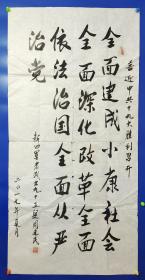 喜迎中共十九大胜利召开
全面建成小康社会
全面深化改革全面
依法治国全面从严
治党
新四军老战士九十三叟周达民
二〇一九年夏月